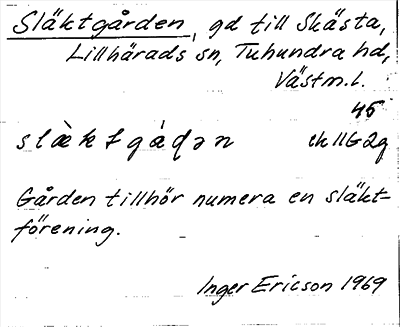 Släktgården, gd till Skästa,
Lillhärads sn, Tuhundra hd,
Västm.l.
45
slàktgáḍən ek 11G2g
Gården tillhör numera en släkt-
förening.
Inger Ericson 1969